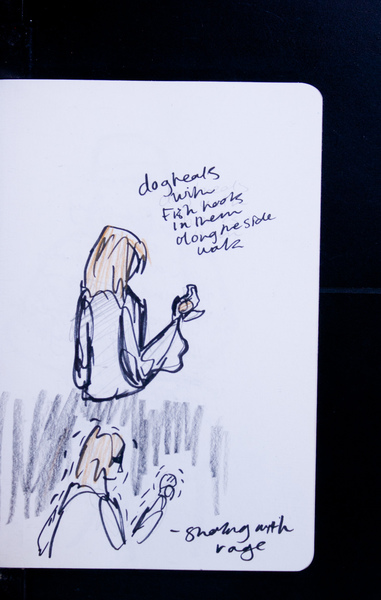 dogtreats
with
Fish hooks
in them
along the side
walk
- shaking with
rage